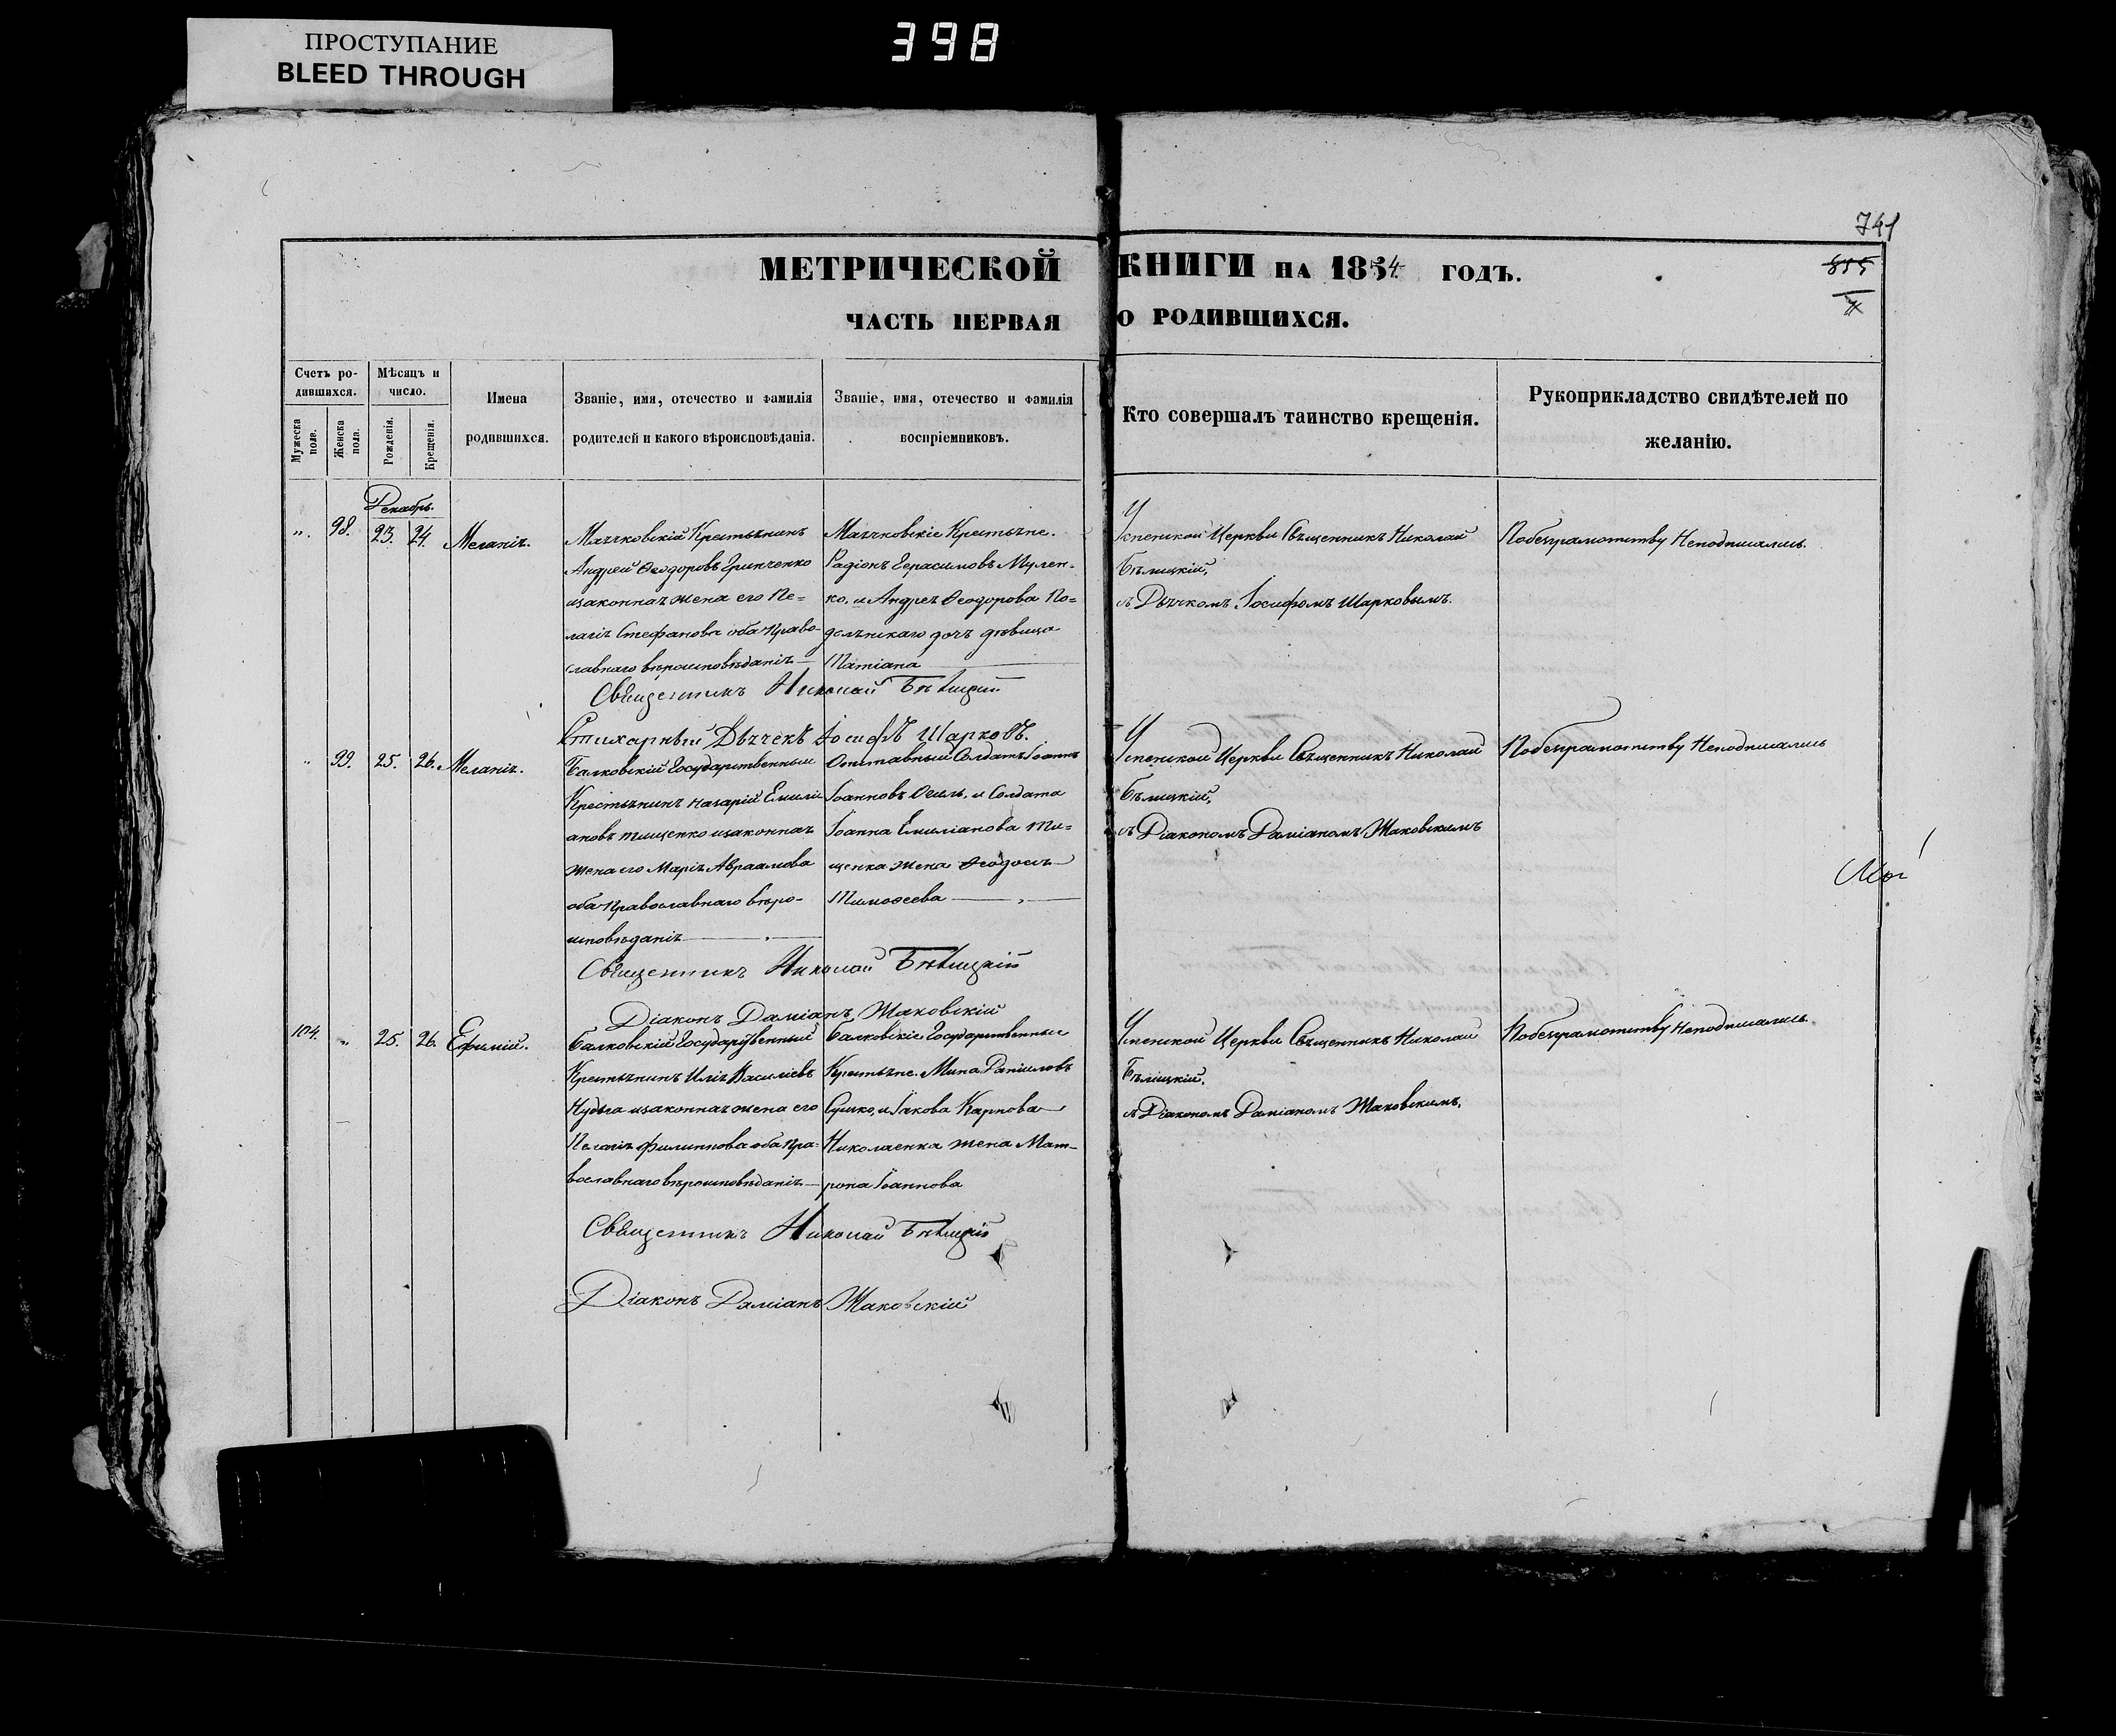 ПРОСТУПАНИЕ
BLEED THROUGH
398
741
МЕТРИЧЕСКОЙ КНИГИ НА 1854 ГОДЪ.
855
ЧАСТЬ ПЕРВАЯ О РОДИВШИХСЯ.
Счетъ ро-
дившихся.
Мужеска
пола.
Женска
пола.
Мѣсяцъ и
число.
Рожденія.
Крещенія.
Имена
родившихся.
Званіе, имя, отечество и фамилія
родителей и какого вѣроисповѣданія.
Званіе, имя, отечество и фамилія
воспріемниковъ.
Кто совершалъ таинство крещенія.
Рукоприкладство свидѣтелей по
желанію.
Декабрь.
„. 98. 23. 24. Меланія.
Крестьянинъ
Андрей Ѳеодоровъ Гринченко
изаконная жена его Пе=
лагія Стефанова оба Право-
славнаго вѣроисповѣданія
Крестьяне.
Радіонъ Герасимовъ Мулен-
ко, и Андрея Ѳеодорова По=
дольнскаго дочь дѣвица
Татіана
Успенской Церкви Священникъ Николай
Бѣлицкій,
съ Дьячкомъ Іосифомъ Шарковымъ.
Побезграмотству Неподписались.
Священникъ Николай Бѣлицкій
Стихарный Дьячекъ Іосифъ Шарковъ.
„ 99. 25. 26. Меланія.
Балковскій Государственный
Крестьянинъ Назарій Емили
ановъ Тищенко изаконная
жена его Марія Авраамова
оба Православнаго вѣро-
исповѣданія
Отставный Солдатъ Іоаннъ
Іоанновъ и Солдата
Іоанна Емиліанова Ти=
щенка жена Ѳеодосія
Тимоѳеева
Успенской Церкви Священникъ Николай
Бѣлицкій,
съ Діакономъ Даміаномъ Жаковскимъ
Побезграмотству Неподписались
Священникъ Николай Бѣлицкій
Діаконъ Даміанъ Жаковскій
104. „ 25. 26. Ефимій.
Балковскій Государственный
Крестьянинъ Илія Василіевъ
Нудьга изаконная жена его
Пелагія Филиппова оба Пра-
вославнаго вѣроисповѣданія
Балковскіе Государственные
Крестьяне. Мина Даніиловъ
Сушко, и Іакова Карпова
Николаенка жена Мат-
рона Іоаннова
Успенской Церкви Священникъ Николай
Бѣлицкій,
съ Діакономъ Даміаномъ Жаковскимъ,
Побезграмотству Неподписались.
Священникъ Николай Бѣлицкій
Діаконъ Даміанъ Жаковскій